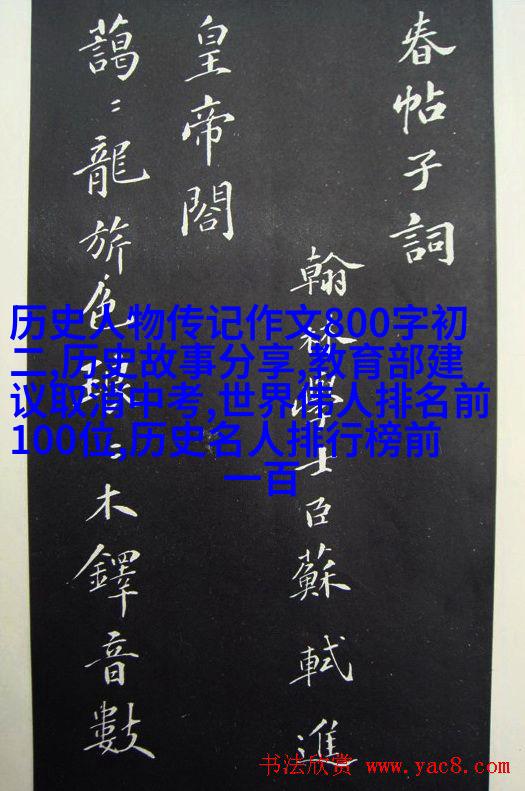 春帖子詞
翰林學士臣蘇軾進
皇帝閣
藹〻龍旂色
木鐸音數
历史人物传记作文800字初
二,历史故事分享,教育部建
议取消中考,世界伟人排名前
100位,历史名人排行榜前
一百
书法欣赏 www.yac8.com